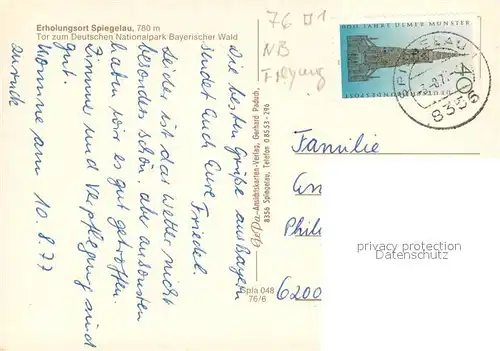 Erholungsort Spiegelau, 780 m
Tor zum Deutschen Nationalpark Bayerischer Wald
Die besten Grüße aus Bayern
sendet Euch Eure
Friedel.
Leider ist das Wetter nicht
besonders schön, aber ansonsten
haben wir es gut getroffen.
Zimmer und Verpflegung sind
gut.
Komme am 10.8.77
zurück
-Ansichtskarten-Verlag, Gerhard Padoch,
8356 Spiegelau, Telefon 0 85 53 - 296
Spla 048
76/6
76 1
NB
Freyung
600 JAHRE ULMER MÜNSTER
DEUTSCHE BUNDESPOST 40
SPIEGELAU
8356
Familie
Phili
6200
privacy protection
VERMERKT.DE